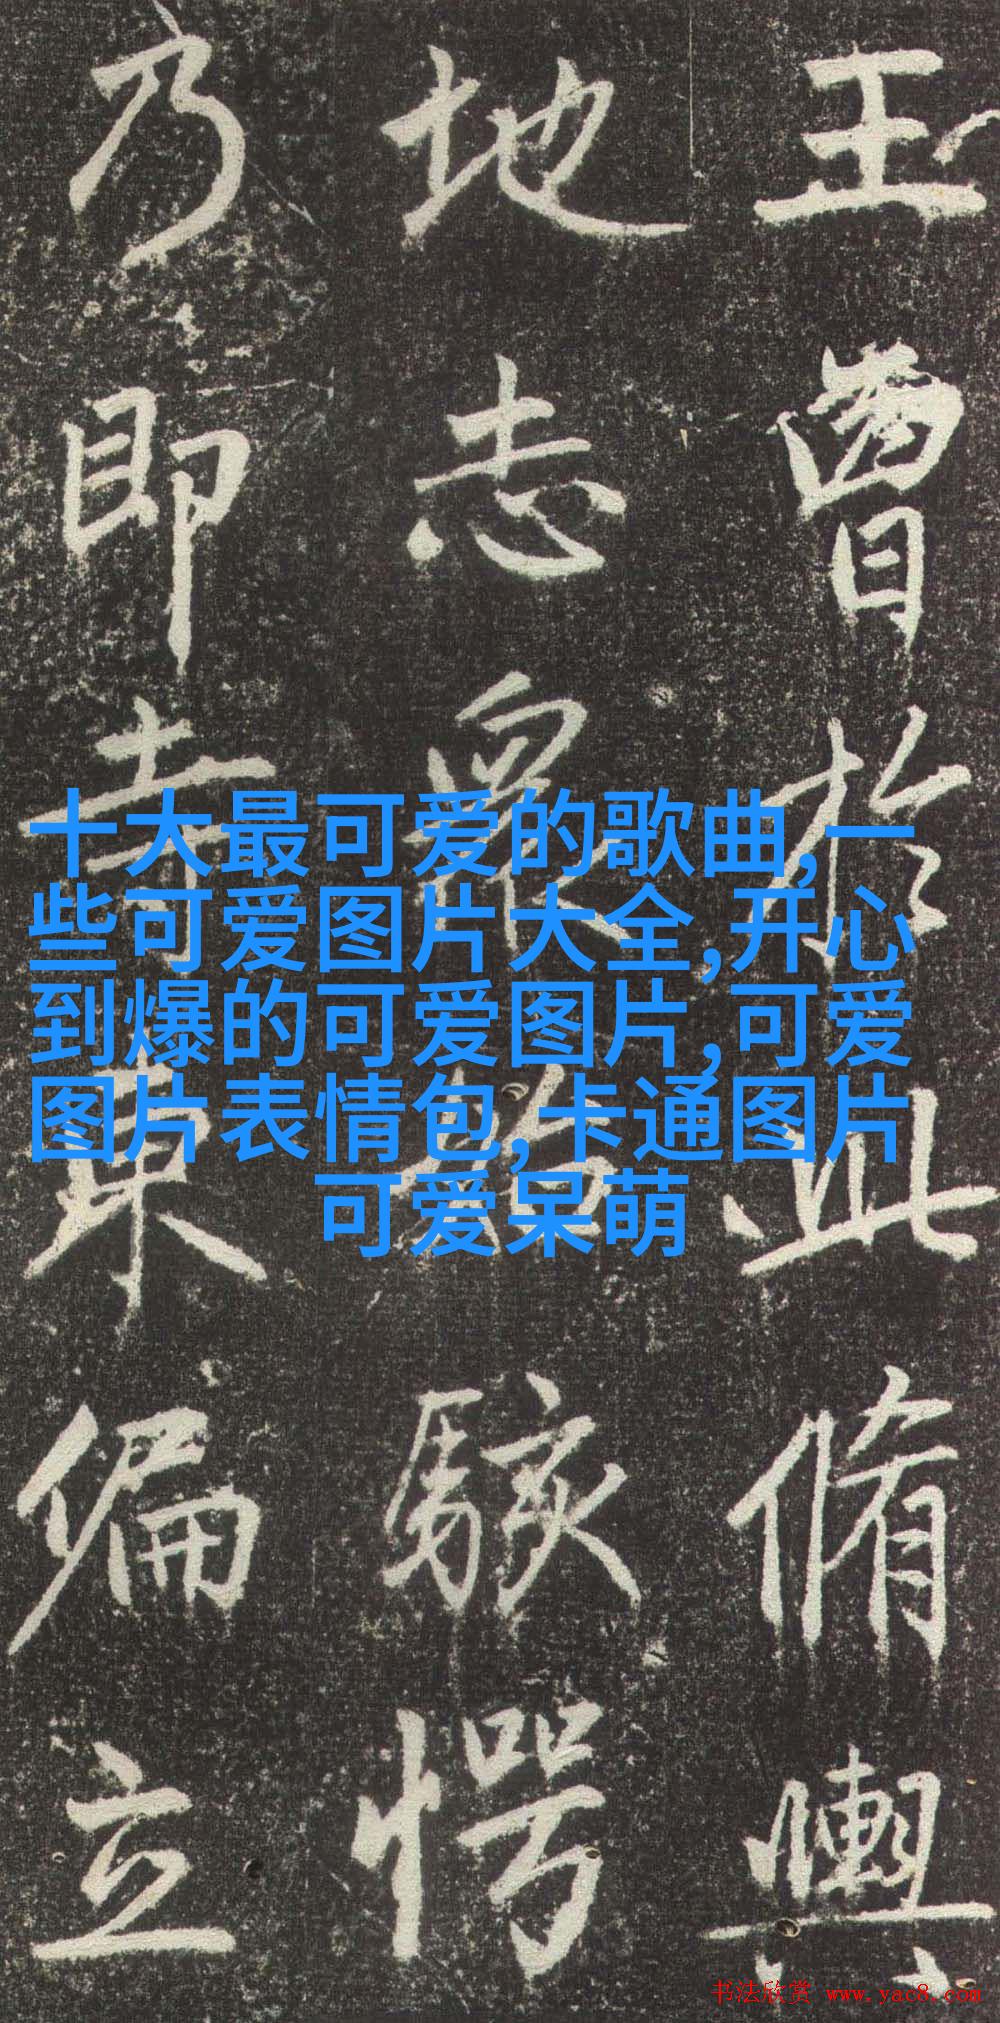 王曾於此脩輿
地志衆始駭愕
乃即寺東偏立
十大最可爱的歌曲,一
些可爱图片大全,开心
到爆的可爱图片,可爱
图片表情包,卡通图片
可爱呆萌
书法欣赏 www.yac8.com